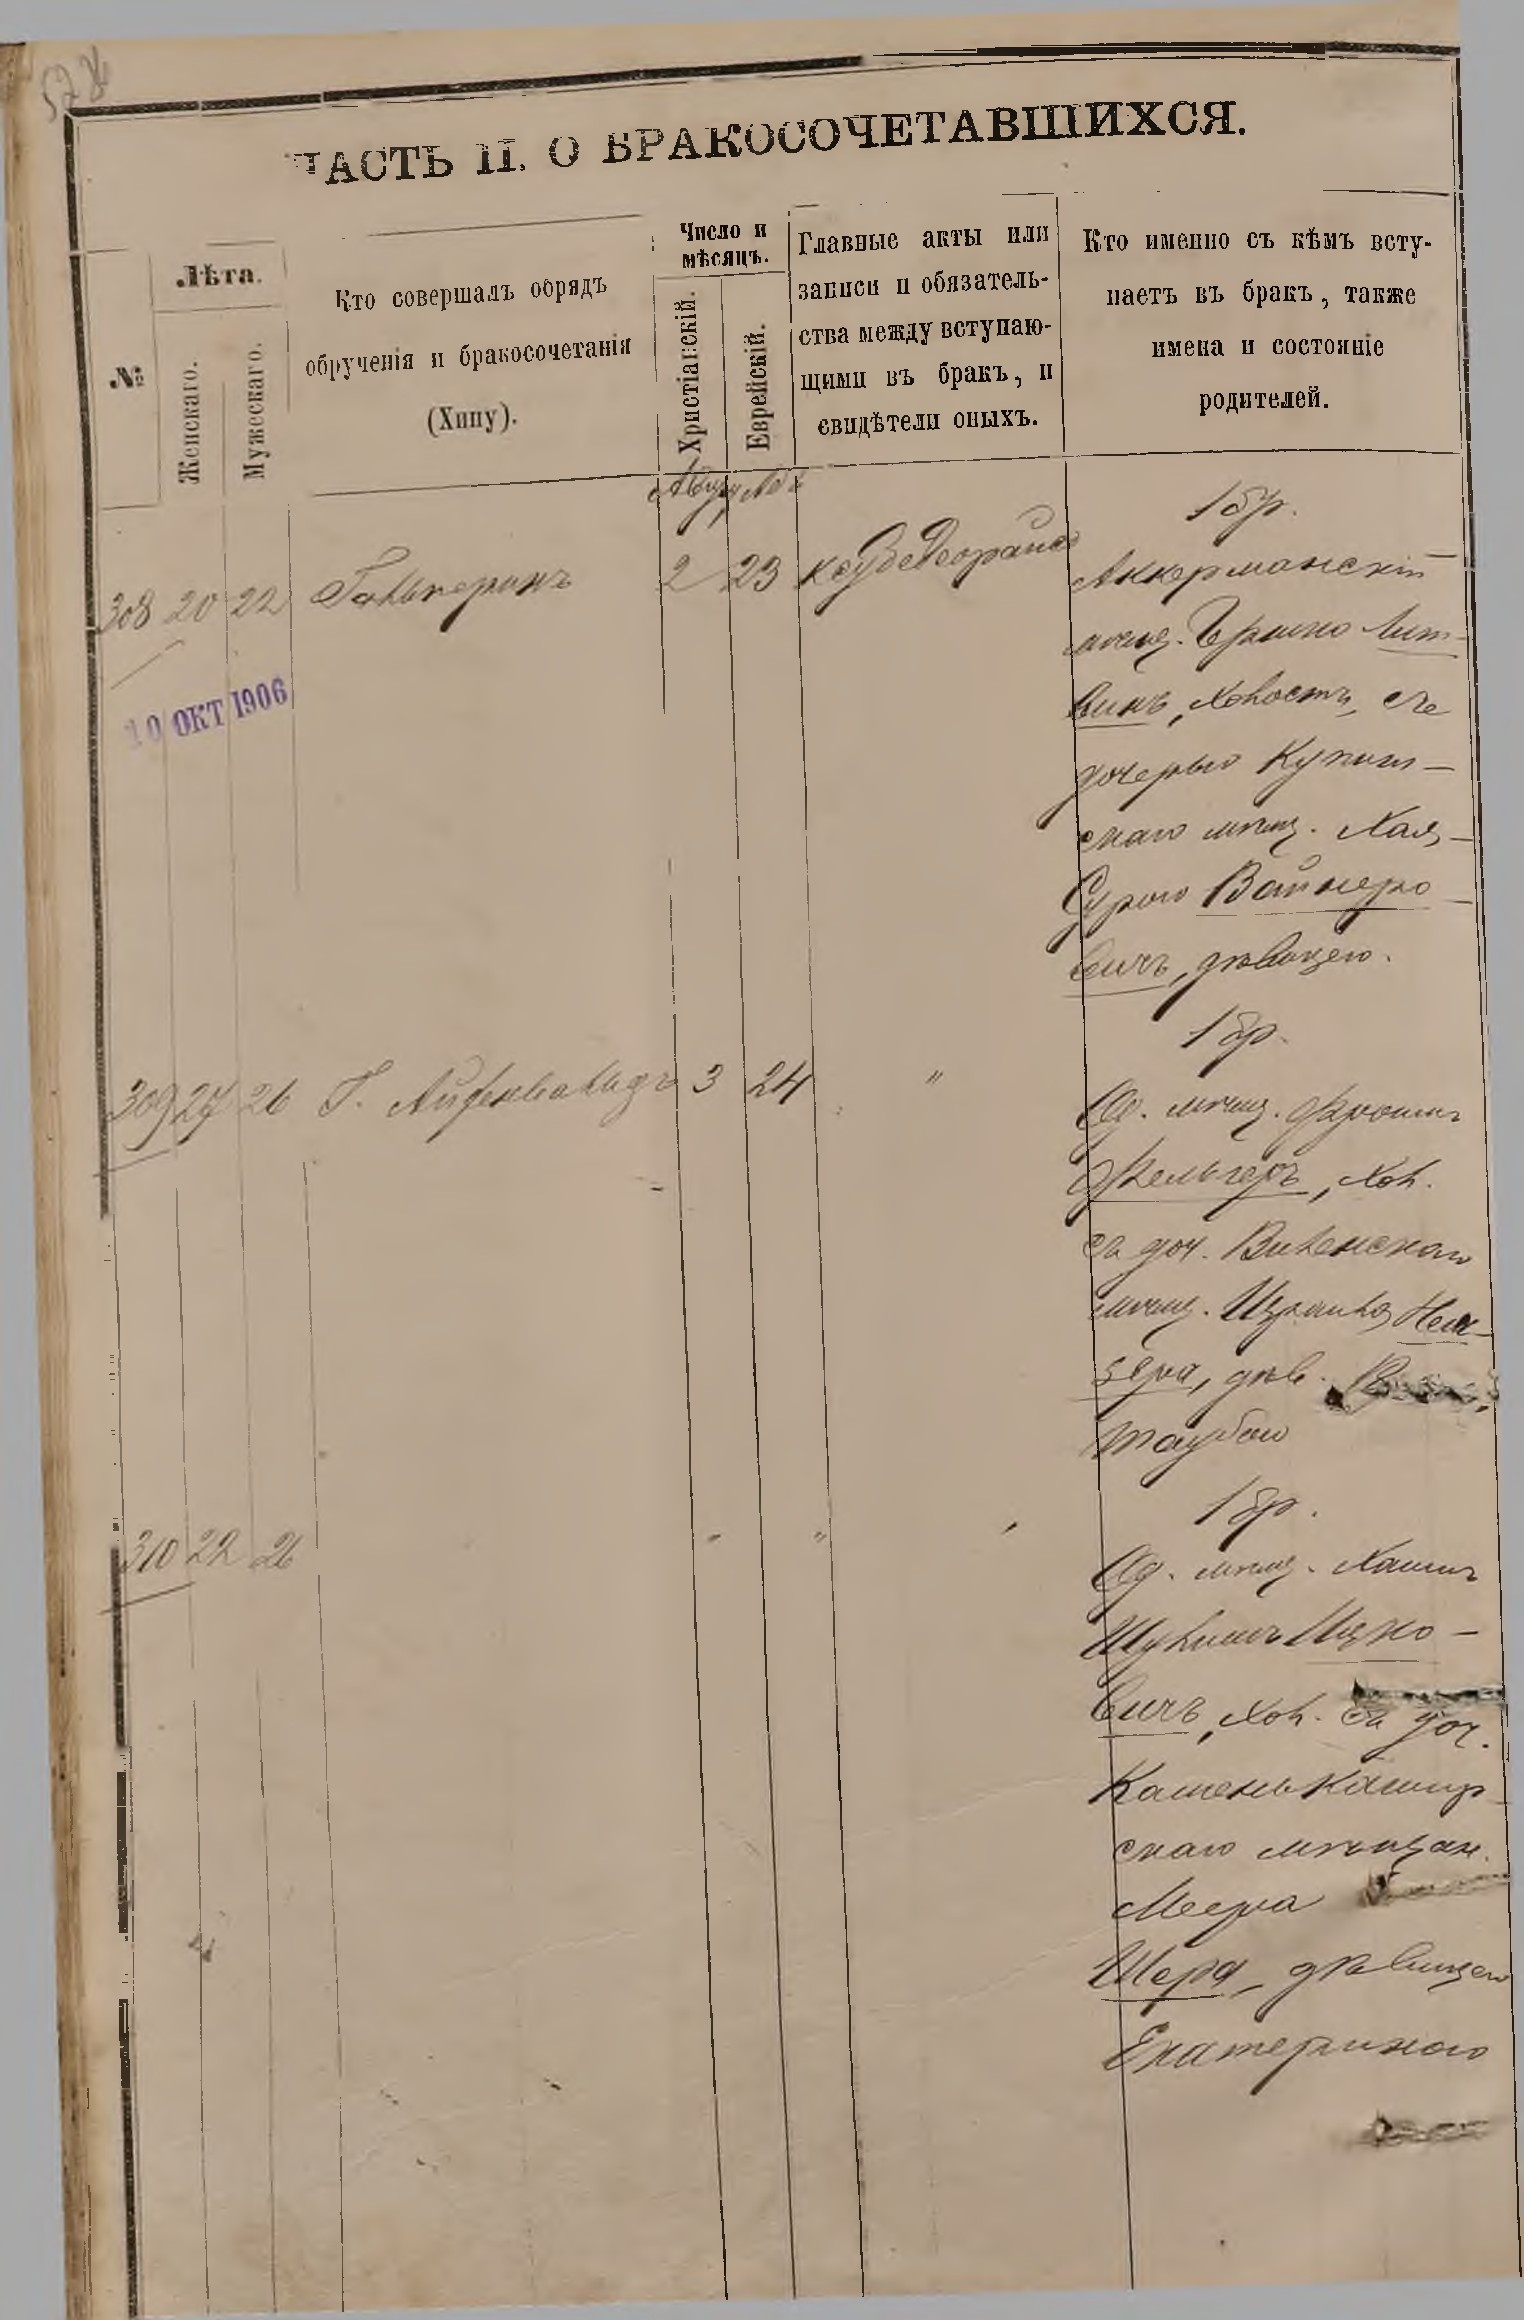 ЧАСТЬ II. О БРАКОСОЧЕТАВШИХСЯ.
№
Лѣта.
Женскаго.
Мужескаго.
Кто совершалъ обрядъ
обрученія и бракосочетанія
(Хипу).
Число и
мѣсяцъ.
Христіанскій.
Еврейскій.
Главные акты или
записи и обязатель-
ства между вступаю-
щими въ бракъ, и
свидѣтели оныхъ.
Кто именно съ кѣмъ всту-
паетъ въ бракъ, также
имена и состояніе
родителей.
308 20 22 Гальперинъ 2 23
10 ОКТ 1906
1 бр.
Аккерманскій
мѣщ. Лит-
винъ, холостъ, съ
дочерью
скаго мѣщ. Хая-
Сурою Вайнеро-
вичъ, дѣвицею.
309 27 26 Г. Айзенвальдъ 3 24 "
1 бр.
Од. мѣщ. Фроимъ
Фельгеръ, хол.
съ доч. Виленскаго
мѣщ. Израиля
зера, дѣв.
Таубою
310 22 26 " "
1 бр.
Од. мѣщ. Хаимъ
Шулимъ Ицко-
вичъ, хол. съ доч.
Камень Кашир-
скаго мѣщан.
Меера
Шера, дѣвицею
Екатериною